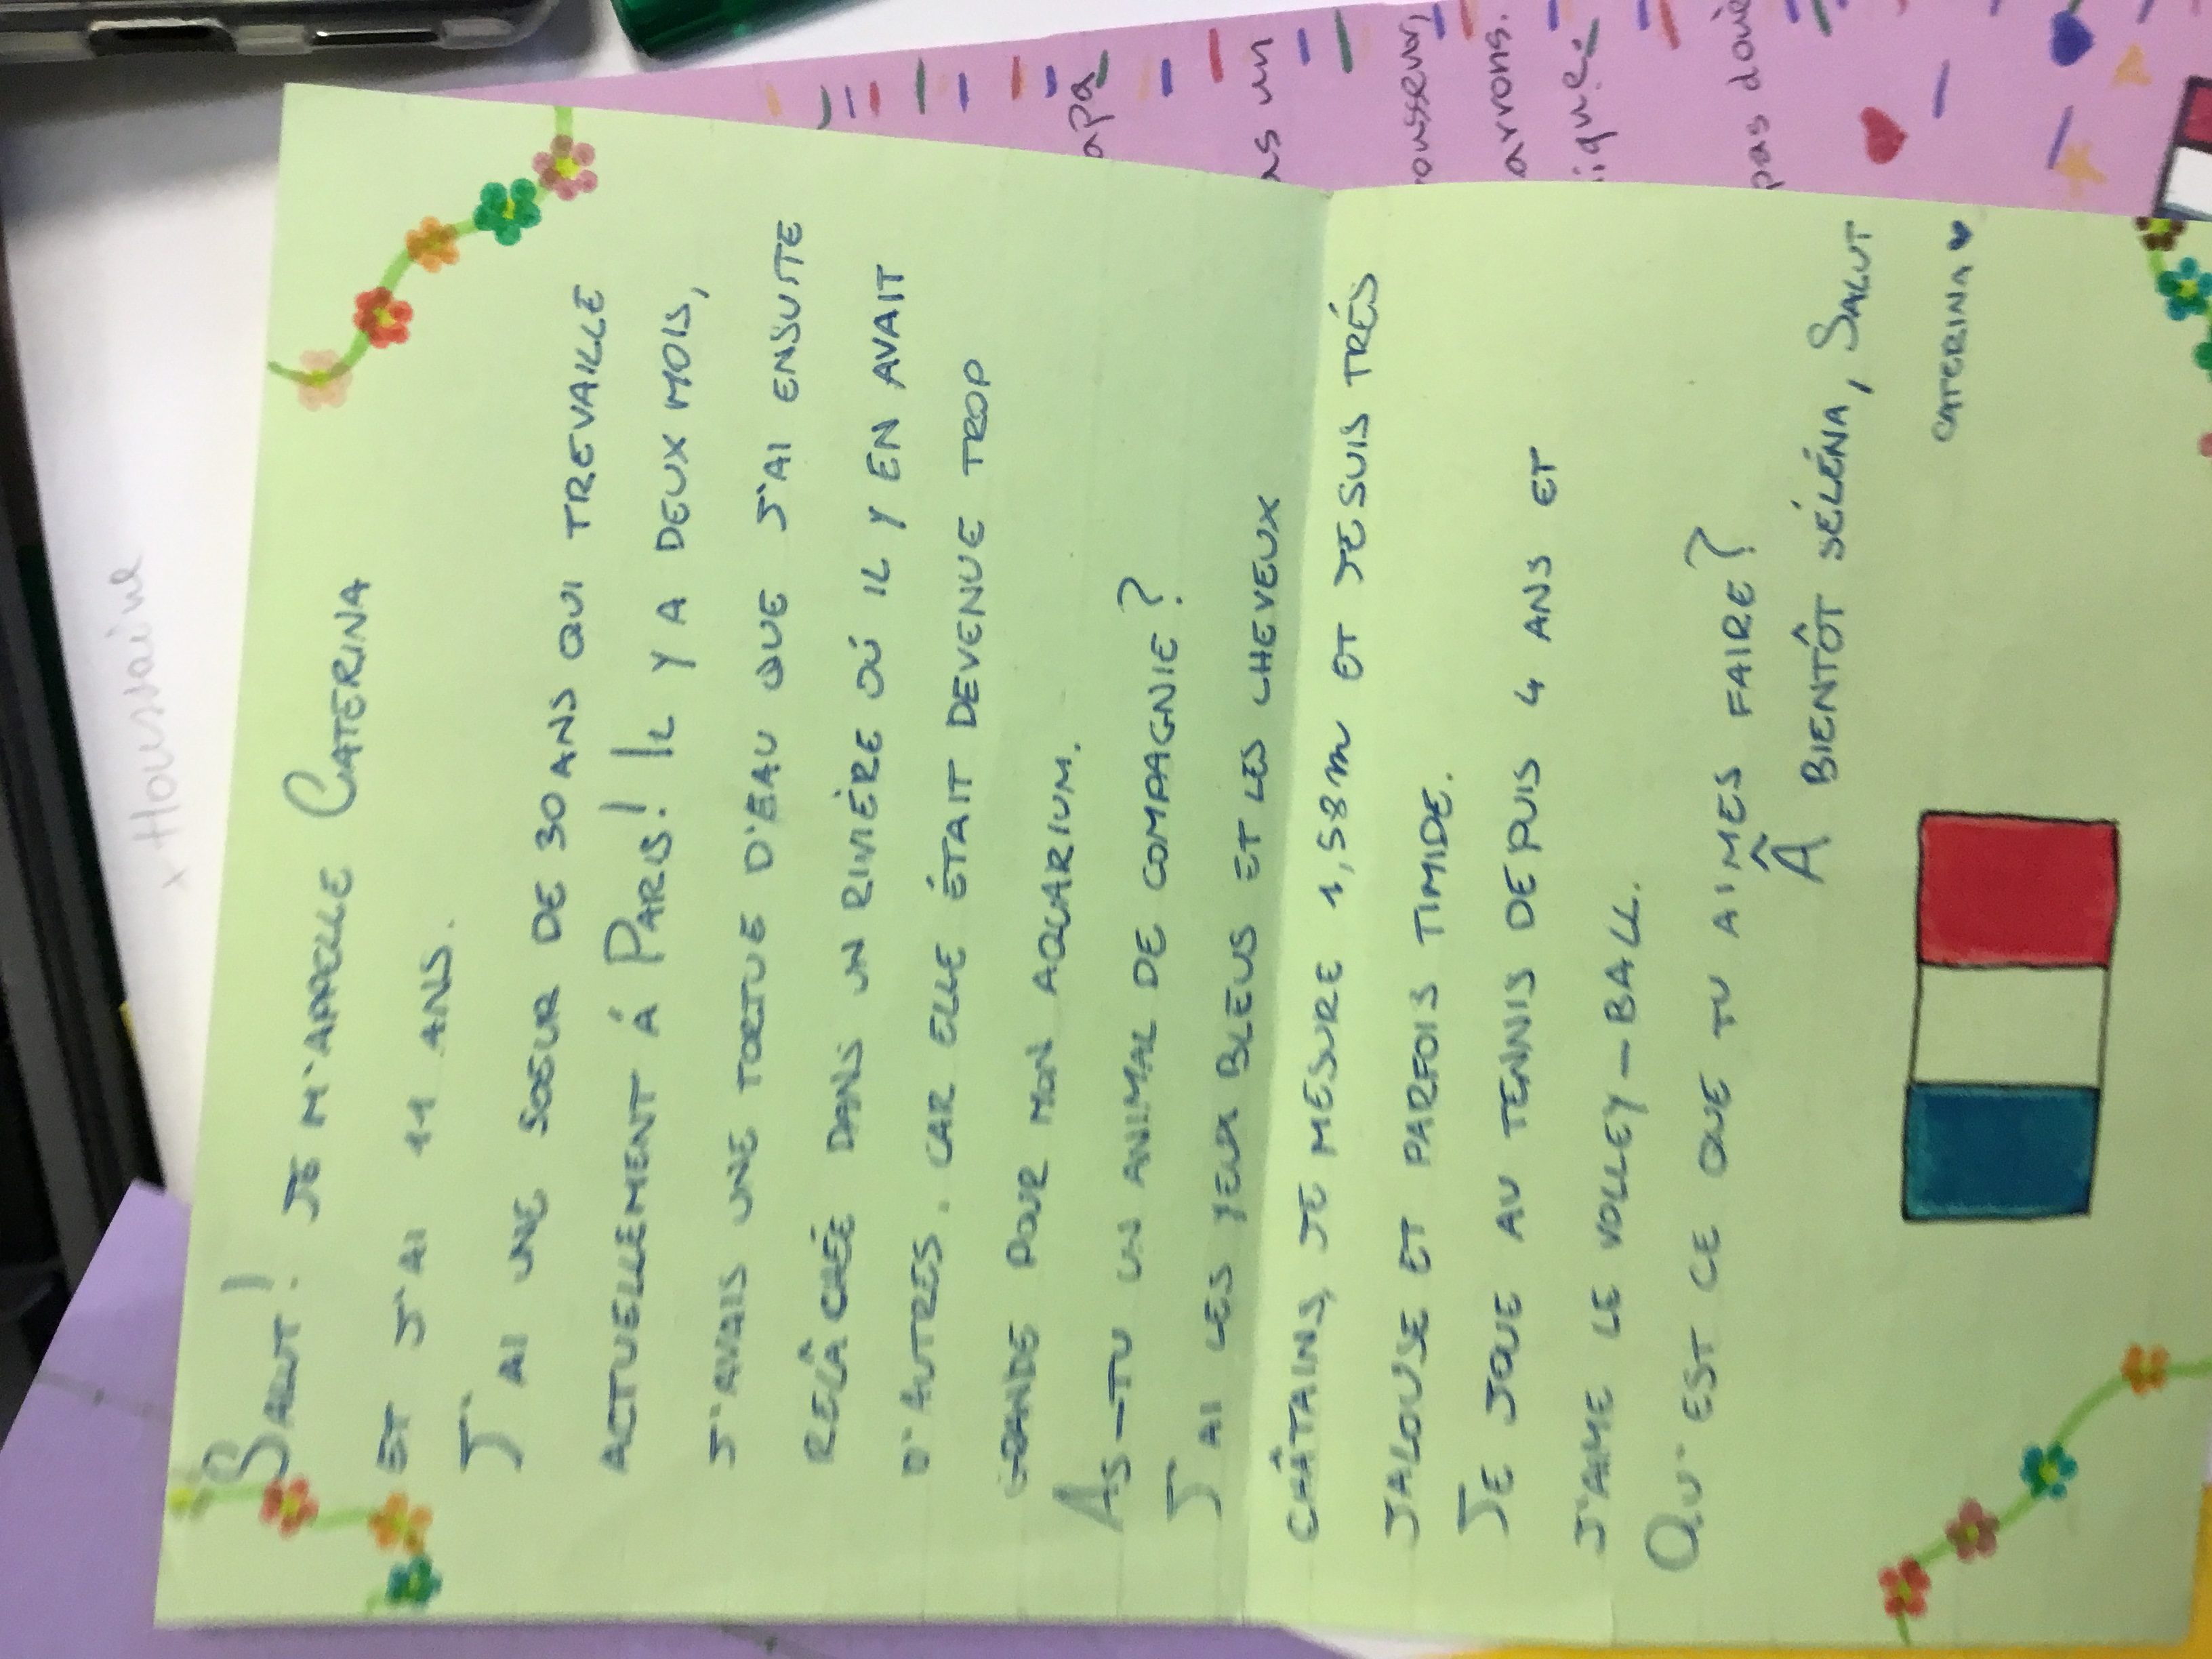 SALUT! JE M'APPELLE CATERINA
ET J'AI 11 ANS.
J'AI UNE SOEUR DE 30 ANS QUI TREVAILLE
ACTUELLEMENT Á PARIS! IL Y A DEUX MOIS,
J'AVAIS UNE TORTUE D'EAU QUE J'AI ENSUITE
RELÂCHÉE DANS UN RIVIÈRE OÚ IL Y EN AVAIT
D'AUTRES. CAR ELLE ÉTAIT DEVENUE TROP
GRANDE POUR MON AQUARIUM.
AS-TU UN ANIMAL DE COMPAGNIE?
J'AI LES YEUX BLEUS ET LES CHEVEUX
CHÂTAINS, JE MESURE 1,58m ET JE SUIS TRÉS
JALOUSE ET PARFOIS TIMIDE.
JE JOUE AU TENNIS DEPUIS 4 ANS ET
J'AIME LE VOLLEY-BALL.
QU'EST CE QUE TU AIMES FAIRE?
Â BIENTÔT SÉLÉNA, SALUT
CATERINA
x Houssaine
as un
pas